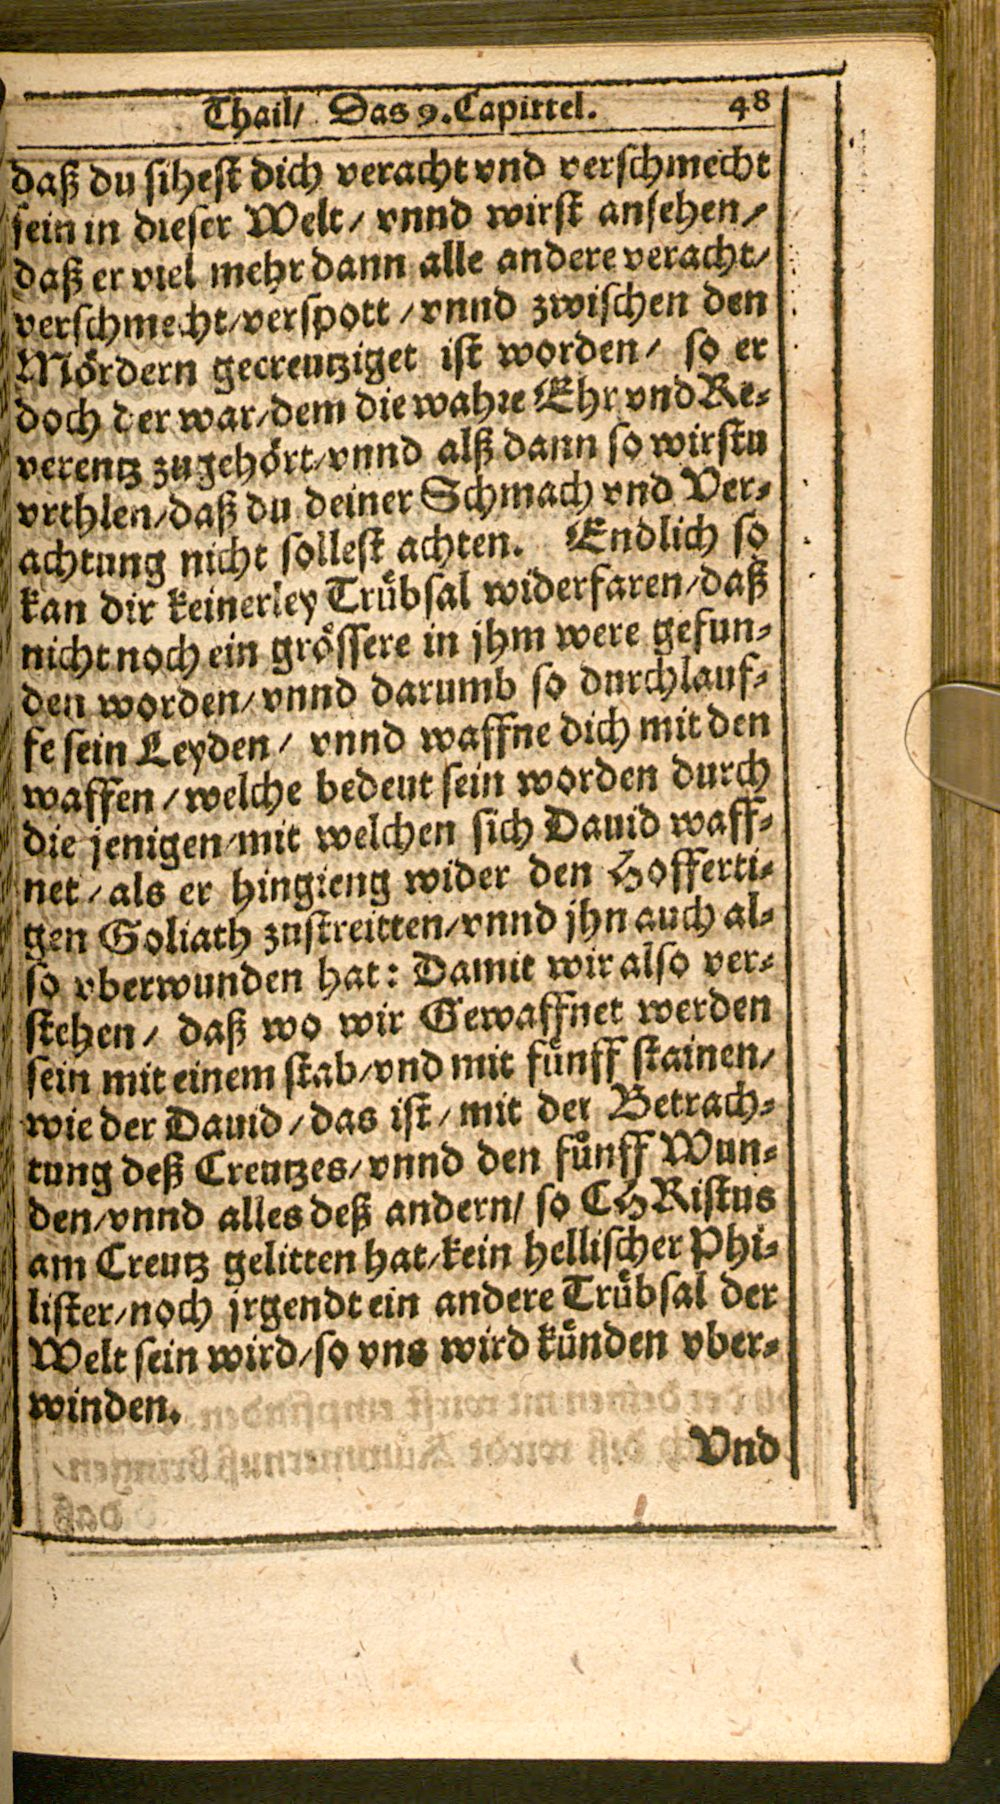 Thail/ Das 9. Capittel. 48
daß du sihest dich veracht vnd verschmecht
sein in dieser Welt/ vnnd wirst ansehen/
daß er viel mehr dann alle andere veracht/
verschmecht/verspott/vnnd zwischen den
Mördern gecreutziget ist worden/ so er
doch der war/dem die wahre Ehr vnd Re-
verentz zugehört/vnnd alß dann so wirstu
vrthlen/daß du deiner Schmach vnd Ver-
achtung nicht sollest achten. Endlich so
kan dir keinerley Trůbsal widerfaren/daß
nicht noch ein grössere in jhm were gefun-
den worden/vnnd darumb so durchlauf-
fe sein Leyden/ vnnd waffne dich mit den
waffen/welche bedeut sein worden durch
die jenigen/mit welchen sich Dauid waff-
net/als er hingieng wider den Hofferti-
gen Goliath zustreitten/vnnd jhn auch al-
so vberwunden hat: Damit wir also ver-
stehen/ daß wo wir Gewaffnet werden
sein mit einem stab/vnd mit fůnff stainen/
wie der Dauid/das ist/mit der Betrach-
tung deß Creutzes/vnnd den fůnff Wun-
den/vnnd alles deß andern/ so CHRistus
am Creutz gelitten hat/kein hellischer Phi-
lister/noch jrgendt ein andere Trůbsal der
Welt sein wird/so vns wird kůnden vber-
winden.
Vnd